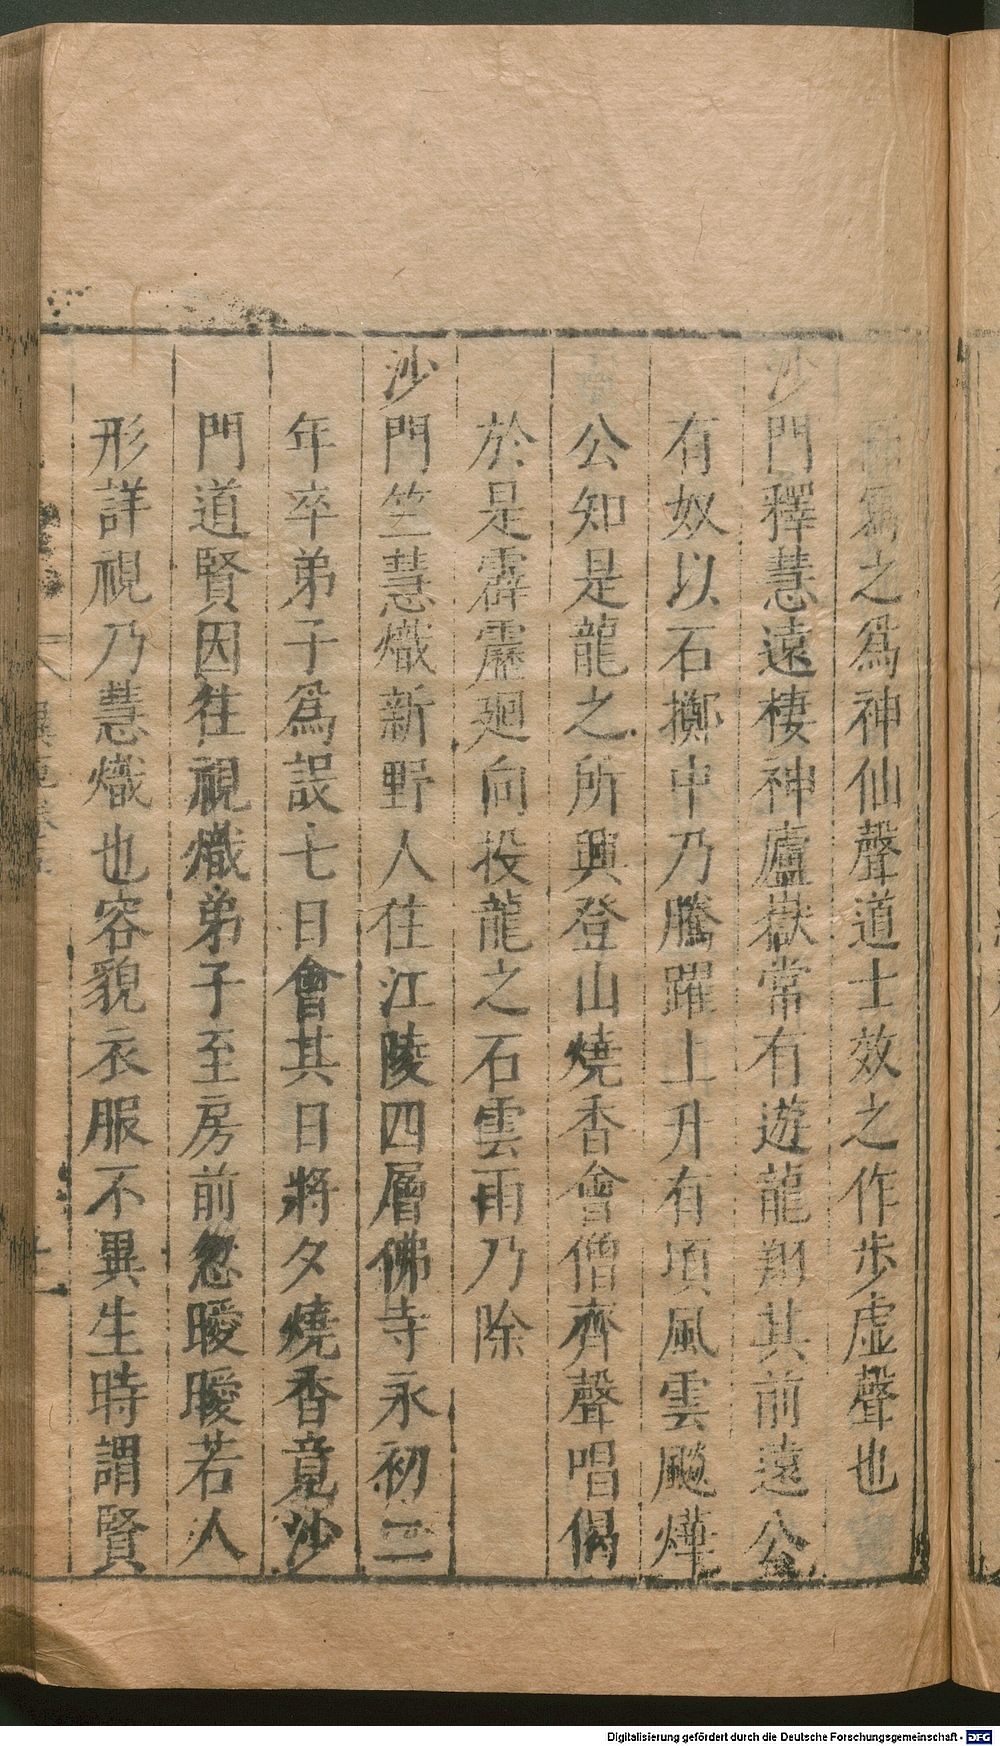 寫之為神仙聲道士效之作步虛聲也
沙門釋慧遠棲神廬嶽常有遊龍翔其前遠公
有奴以石擲中乃騰躍上升有頃風雲飈燁
公知是龍之所興登山燒香會僧齊聲唱偈
於是霹靂廻向投龍之石雲雨乃除
沙門竺慧熾新野人住江陵四層佛寺永初二
年卒弟子爲設七日會其日將夕燒香竟沙
門道賢因往視熾弟子至房前忽曖曖若人
形詳視乃慧熾也容貌衣服不異生時謂賢
異苑卷五
Digitalisierung gefördert durch die Deutsche Forschungsgemeinschaft - DFG